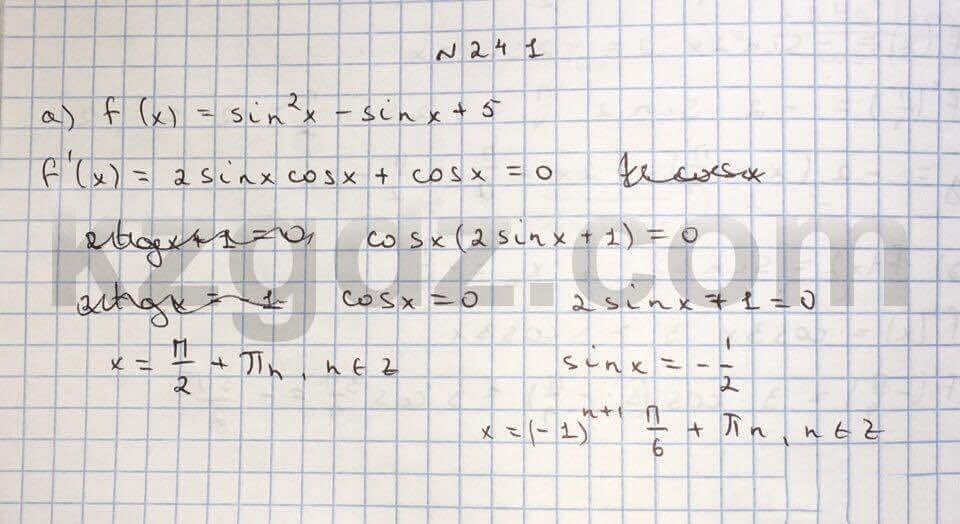 N 241
a) f(x) = sin²x - sinx + 5
f'(x) = 2sinx cosx + cosx = 0
cosx(2sinx + 1) = 0
cosx = 0 2sinx + 1 = 0
x = π/2 + πn, n ∈ Z sinx = -1/2
x = (-1)ⁿ⁺¹ π/6 + πn, n ∈ Z
kzgdz.com